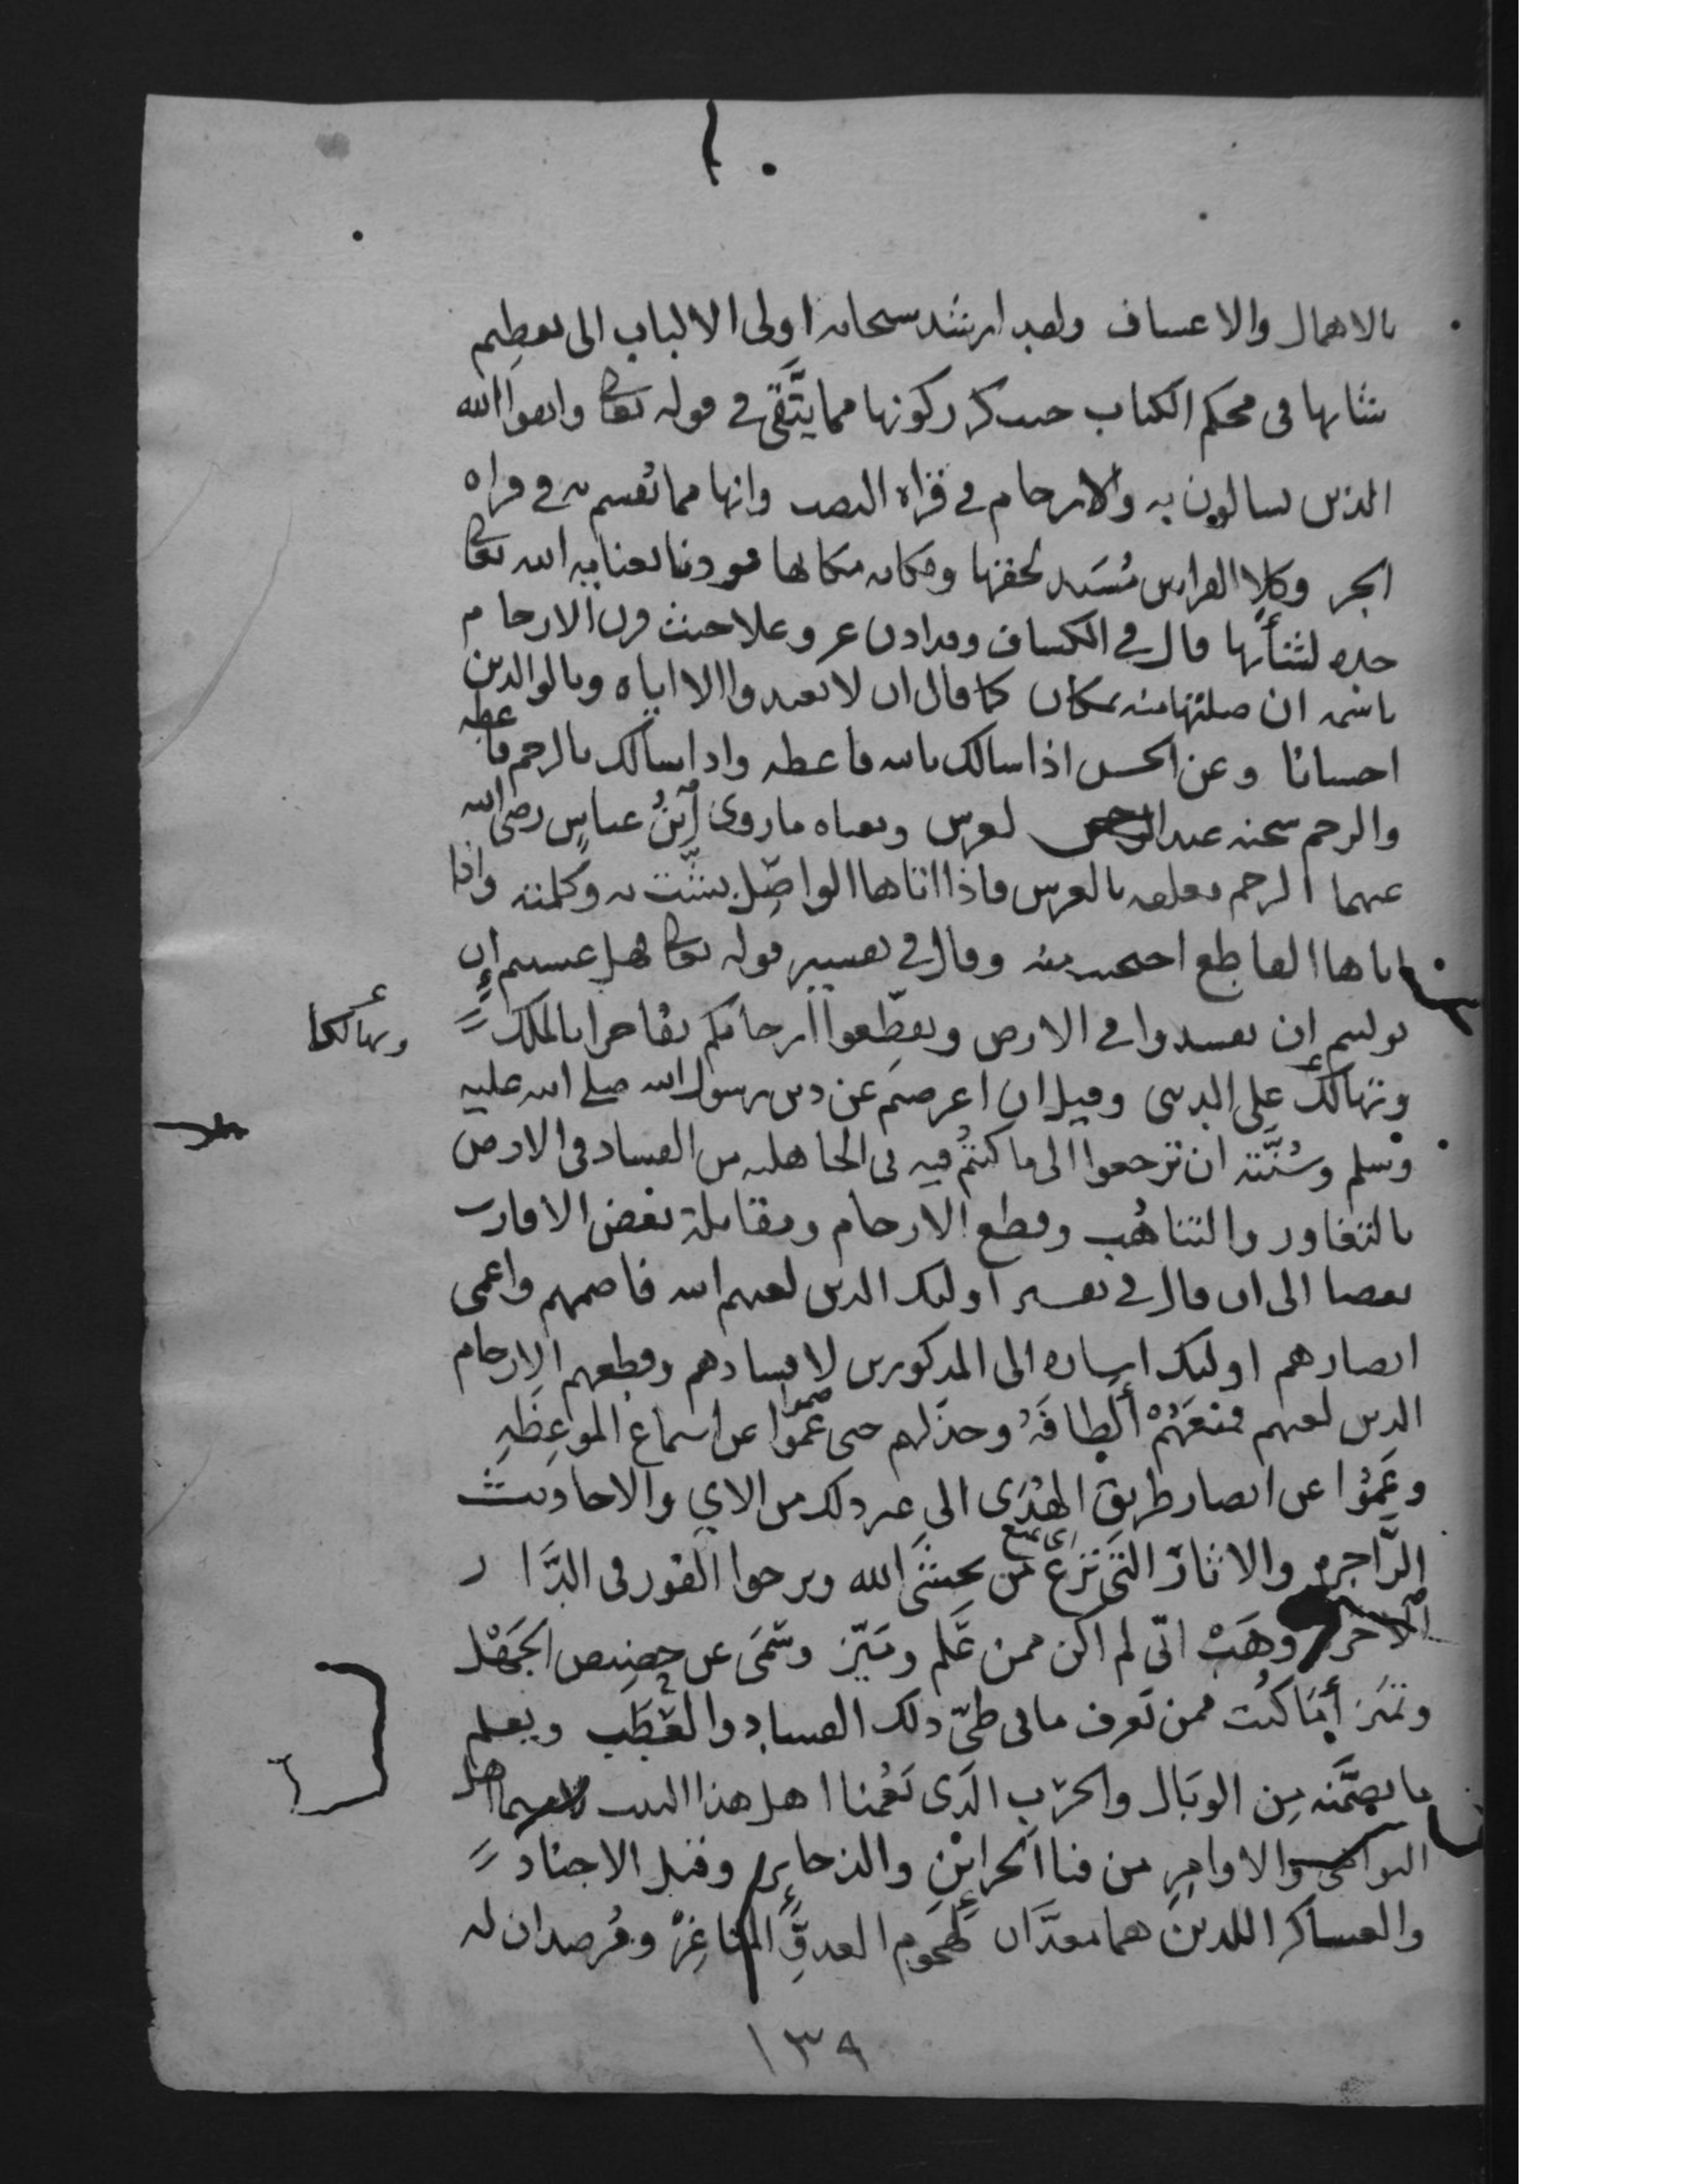 بالاهمال والاعساف ولقد ارشد سبحانه اولى الالباب الى تعظيم
شانها فى محكم الكتاب حيث ذكر كونها مما يتّقى في قوله تعالى واتقوا الله
الذين تسالون به والارحام في قراة النصب وانها مما تقسم به في قراه
الجر وكلا القراتين مشيد لحقها ومكانه مكانها موذنا بعنايه الله تعالى
جده لشأنها قال في الكشاف وقد اذن عز وعلا حيث قرن الارحام
باسمه ان صلتها منه بمكان كما قال ان لا تعبدوا الا اياه وبالوالدين
احسانا وعن الحسن اذا سالك بالله فاعطه واذا سالك بالرحم فاعطه
والرحم سحنه عند العرش ومعناه ما روى ابْنُ عباسٍ رضى الله
عنهما الرحم معلقه بالعرش فاذا اتاها الواصِل بشّت به وكلمته واذا
اتاها القاطع احتجبت منه وقال في تفسير قوله تعالى فهل عسيتم ان
توليتم ان تفسدوا في الارض وتقطّعوا ارحامكم تفاحرا بالملك
وتهالكا
وتهالك على الدنيى وقيل ان اعرضتم عن دين رسول الله صلى الله عليه
وسلم وسُنَّته ان ترجعوا الى ما كنتُم فيه فى الجاهليه من الفساد فى الارض
بالتغاور والتناهُب وقطع الارحام ومقاتلة بعض الاقارب
بعضا الى ان قال في تفسير اوليك الذين لعنهم الله فاصمهم واعمى
ابصارهم اوليك اشاره الى المذكورين لافسادهم وقطعهم الارحام
الذين لعنهم فمنعَهُمْ ألطافَهُ وخذلهم حتى صموا عن استماع الموعِظَهِ
وعَمُوْا عن ابصار طريق الهُدَى الى غير ذلك من الاي والاحاديث
الزَّاجره والاثار التى تَزَعُ اى تمنع من يخشَى الله ويرجوا الفوز فى الدَّار
الاخره وهَبْ انّى لم اكن ممن عَلم وميّز وسَمَى عن حضيض الجَهْل
وتميَز أمَا كنُت ممن تعرف ما فى طىّ ذلك الفساد والعَطَب ويعلم
ما تضمَّنه مِن الوبَال والحَرَب الّذى يَعُمنا اهل هذا البيت لاسيما اهل
النواهى والاوامِرِ من فنا الخزاين والذخاير وقتل الاجناد
والعساكر اللذين هما معدَّان لهجُوم العدوِّ المثاغِرْ ومُرصدان له
١٣٩